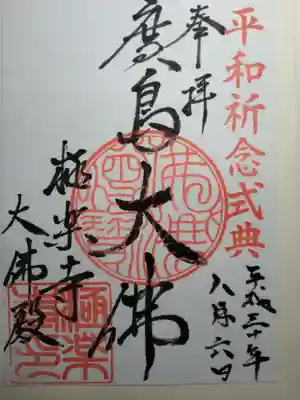 平和祈念式典
平成三十年
八月六日
奉拝
廣島大佛
極楽寺
大佛殿